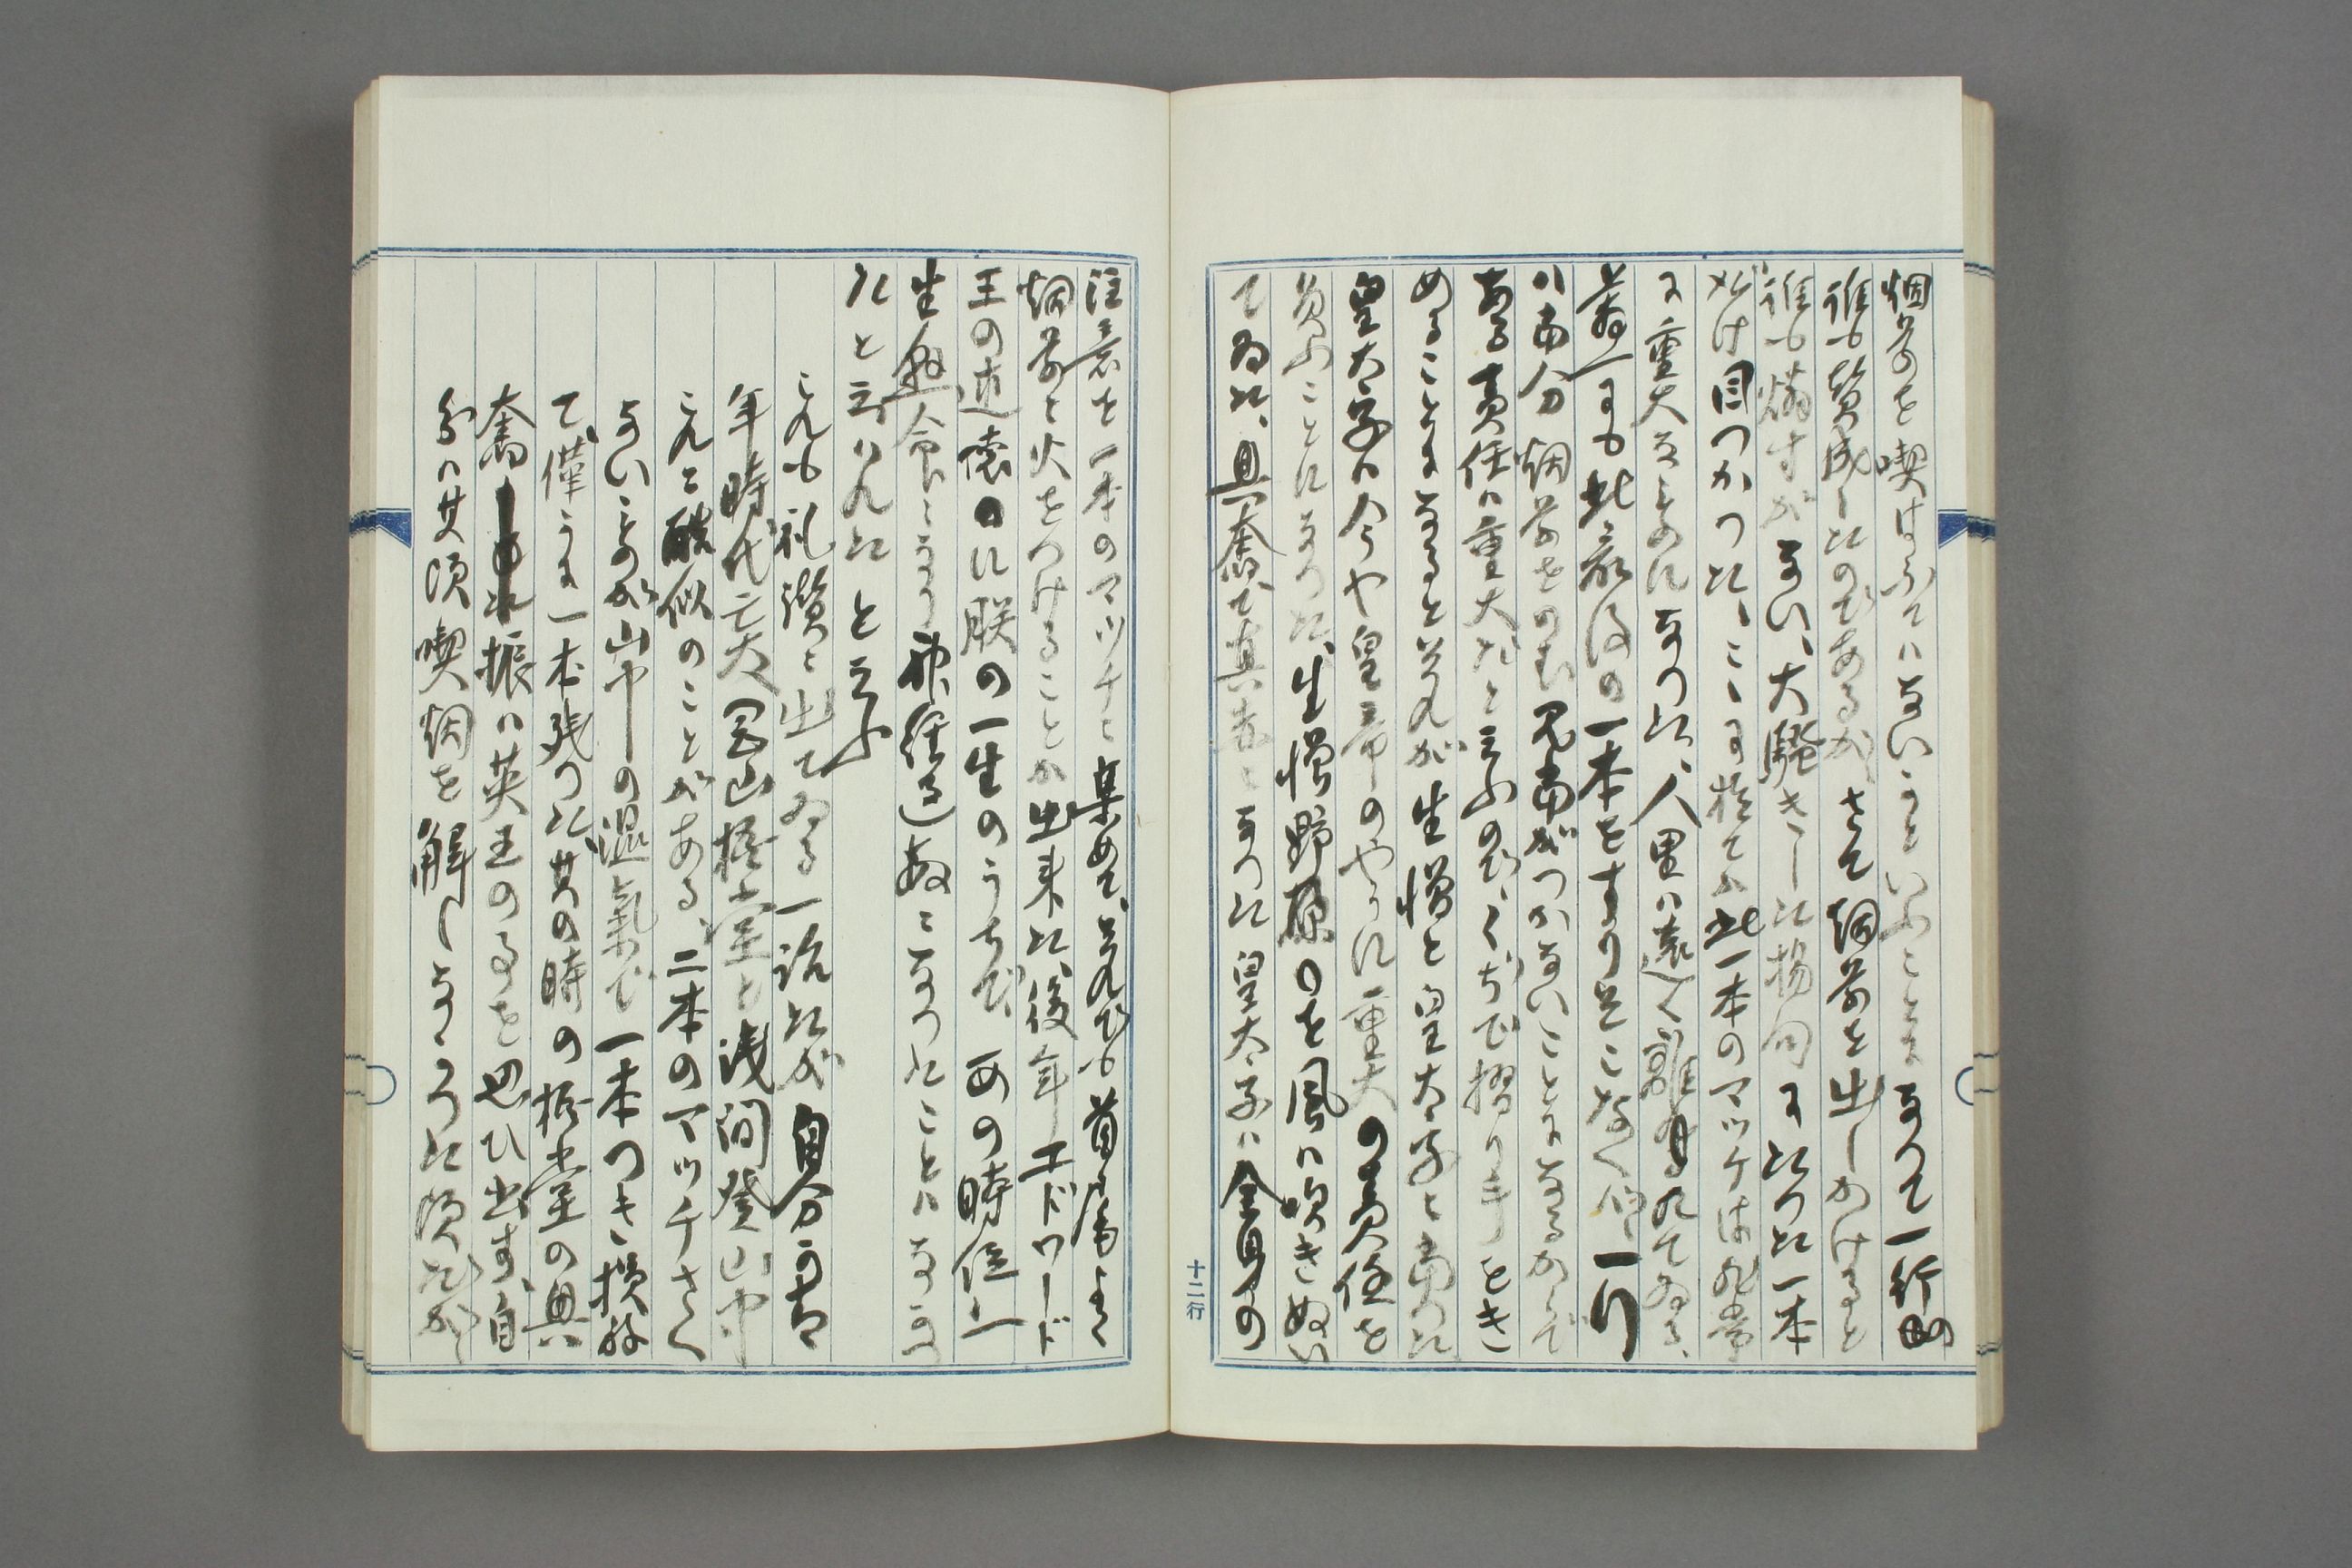 烟草を喫はふではないかといふことになつて一行の
誰も賛成したのであるが、さて烟草を出しかけると
誰も燐寸がない、大騒ぎした揚句にたつた一本
だけ目つかつた、こゝに於てか此一本のマツチは非常
に重大なものになつた、人里は遠く離れてゐる、
若しも此最後の一本をすりそこなへば、一行
は当分烟草をのむ見当がつかないことになるからで
ある責任は重大だと云ふので、くぢで摺り手をき
めることになると、それが生憎と皇太子と当つた
皇太子は今や皇帝のやうに重大の責任を
負ふことになつた、生憎野原のを風は吹きぬい
てゐた、興奮で真青になつた皇太子は全身の
注意を一本のマツチに集めて、それでも首尾よく
烟草と火をつけることが出来た、後年エドワード
王の述懐に朕の一生のうちで、あの時位
生命と神経過敏になつたことはなかつ
たと云はれた と云ふ
これも礼讃に出てゐる一話だが 自分も青
年時代亡友岡山括堂と浅間登山中
これに酷似のことがある、二本のマツチさへ
ないものが山中の湿気で一本つき損ね
て、僅かに一本残つた其の時の括堂の興
奮振は英王のそれを思ひ出す、自
分は其頃喫烟を解しなかつた頃だから